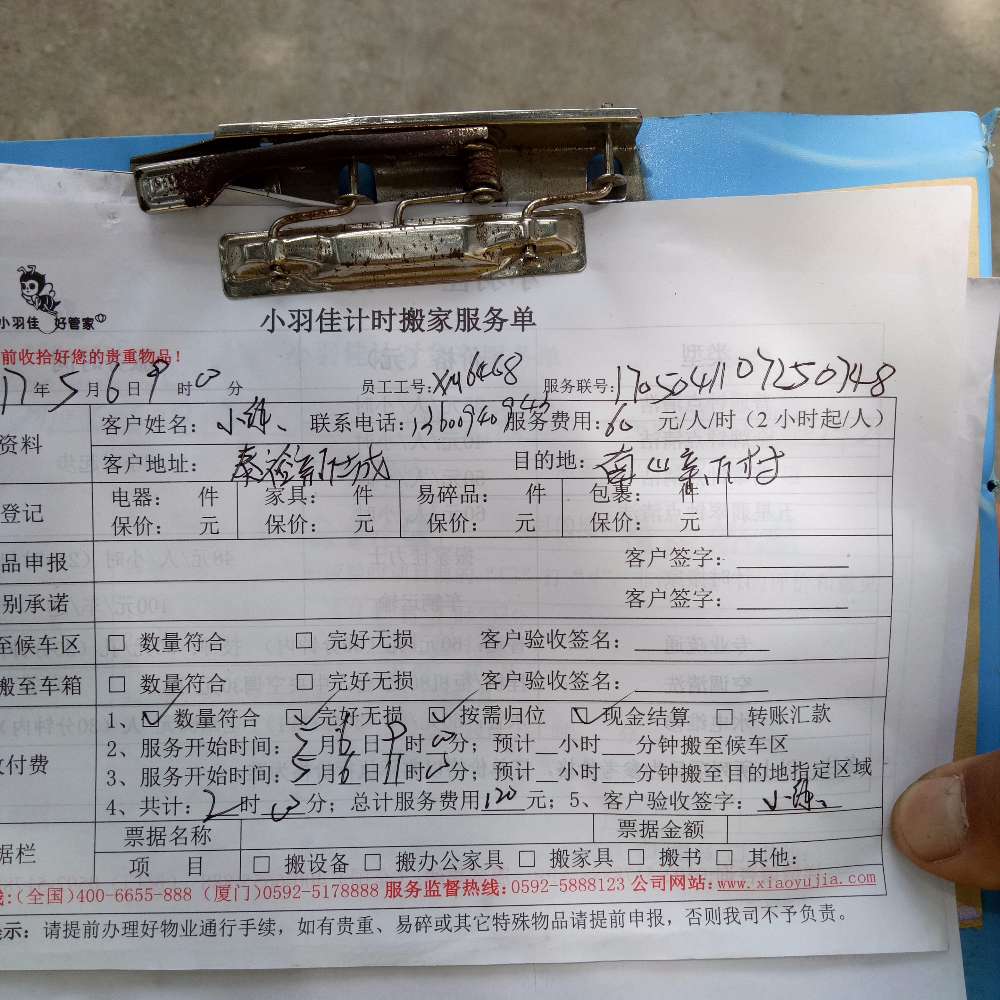 小羽佳 好管家
小羽佳计时搬家服务单
前收拾好您的贵重物品！
17年5月6日9时00分 员工工号：XM6468 服务联号：
资料 客户姓名：小 联系电话： 服务费用：60 元/人/时（2小时起/人）
客户地址： 目的地：
登记 电器： 件 家具： 件 易碎品： 件 包裹： 件
保价： 元 保价： 元 保价： 元 保价： 元
品申报 客户签字：
别承诺 客户签字：
至候车区 □ 数量符合 □ 完好无损 客户验收签名：
搬至车箱 □ 数量符合 □ 完好无损 客户验收签名：
1、☑ 数量符合 ☑ 完好无损 ☑ 按需归位 ☑ 现金结算 □ 转账汇款
2、服务开始时间：5月6日9时00分；预计__小时___分钟搬至候车区
付费 3、服务开始时间：5月6日11时00分；预计__小时___分钟搬至目的地指定区域
4、共计：2时00分；总计服务费用120元；5、客户验收签字：小
据栏 票据名称 票据金额
项 目 □ 搬设备 □ 搬办公家具 □ 搬家具 □ 搬书 □ 其他：
线：(全国)400-6655-888（厦门)0592-5178888 服务监督热线：0592-5888123 公司网站：www.xiaoyujia.com
示：请提前办理好物业通行手续，如有贵重、易碎或其它特殊物品请提前申报，否则我司不予负责。